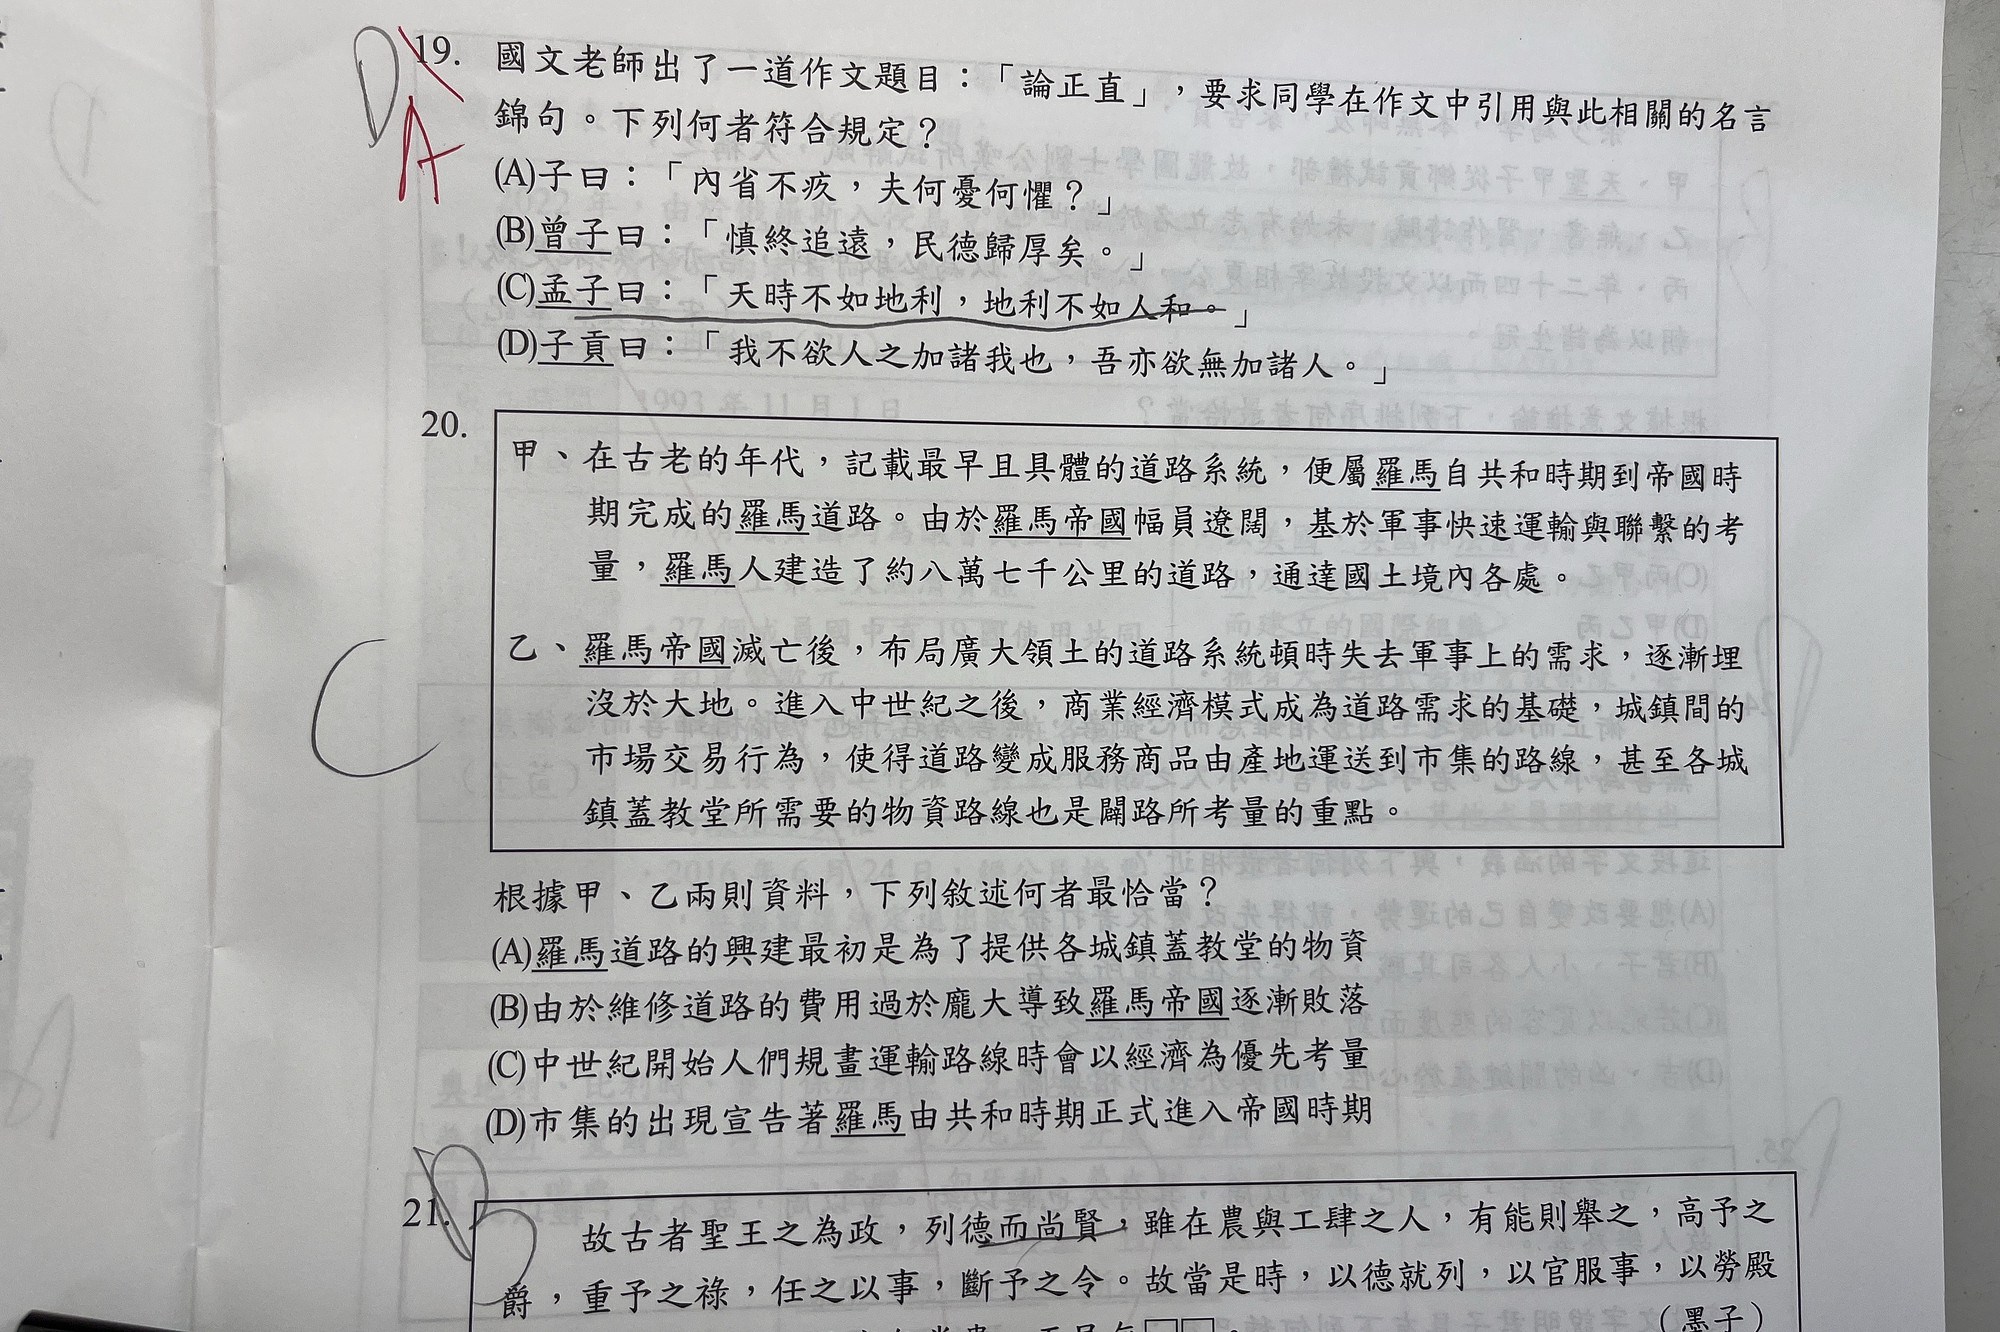 D
A
19. 國文老師出了一道作文題目：「論正直」，要求同學在作文中引用與此相關的名言
錦句。下列何者符合規定？
(A)子曰：「內省不疚，夫何憂何懼？」
(B)曾子曰：「慎終追遠，民德歸厚矣。」
(C)孟子曰：「天時不如地利，地利不如人和。」
(D)子貢曰：「我不欲人之加諸我也，吾亦欲無加諸人。」
20.
甲、在古老的年代，記載最早且具體的道路系統，便屬羅馬自共和時期到帝國時
期完成的羅馬道路。由於羅馬帝國幅員遼闊，基於軍事快速運輸與聯繫的考
量，羅馬人建造了約八萬七千公里的道路，通達國土境內各處。
C
乙、羅馬帝國滅亡後，布局廣大領土的道路系統頓時失去軍事上的需求，逐漸埋
沒於大地。進入中世紀之後，商業經濟模式成為道路需求的基礎，城鎮間的
市場交易行為，使得道路變成服務商品由產地運送到市集的路線，甚至各城
鎮蓋教堂所需要的物資路線也是闢路所考量的重點。
根據甲、乙兩則資料，下列敘述何者最恰當？
(A)羅馬道路的興建最初是為了提供各城鎮蓋教堂的物資
(B)由於維修道路的費用過於龐大導致羅馬帝國逐漸敗落
(C)中世紀開始人們規畫運輸路線時會以經濟為優先考量
(D)市集的出現宣告著羅馬由共和時期正式進入帝國時期
21.
故古者聖王之為政，列德而尚賢，雖在農與工肆之人，有能則舉之，高予之
爵，重予之祿，任之以事，斷予之令。故當是時，以德就列，以官服事，以勞殿
（墨子）